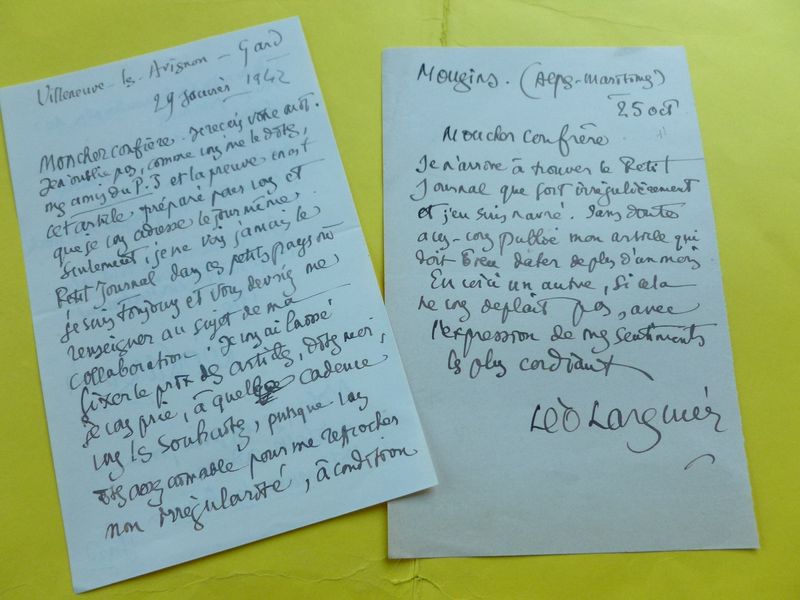 Villeneuve-lès-Avignon - Gard
29 Janvier 1942
Mon cher confrère. Je reçois votre mot.
Je n'oublie pas, comme vous me le dites,
mes amis du P.J et la preuve en est
cet article préparé pour vous et
que je vous adresse le jour même.
Seulement, je ne vois jamais le
Petit Journal dans ces petits pays où
je suis toujours et vous devriez me
renseigner au sujet de ma
collaboration. Je vous ai laissé
fixer le prix des articles, dites moi,
je vous prie, à quelle cadence
vous les souhaitez, puisque vous
êtes assez aimable pour me reprocher
mon irrégularité, à condition
Mougins. (Alpes-Maritimes)
25 oct
Mon cher confrère
Je n'arrive à trouver le Petit
Journal que fort irrégulièrement
et j'en suis navré. Sans doute
avez-vous publié mon article qui
doit bien dater de plus d'un mois
En voici un autre, si cela
ne vous déplait pas, avec
l'expression de mes sentiments
les plus cordiaux
Léo Larguier